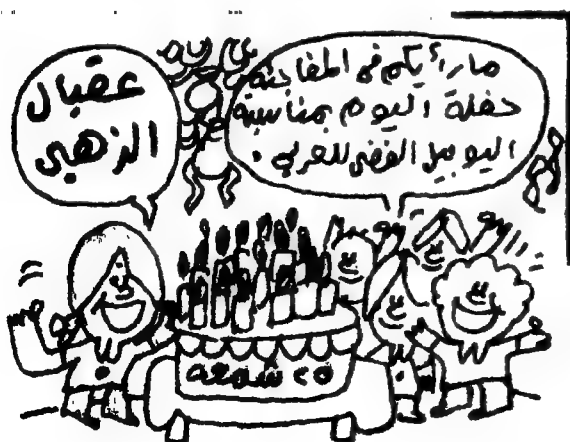 ما رأيكم في المفاجئة
حفلة اليوم بمناسبة
اليوبيل الفضي للعربي .
عقبال
الذهبي
٢٥ شمعة